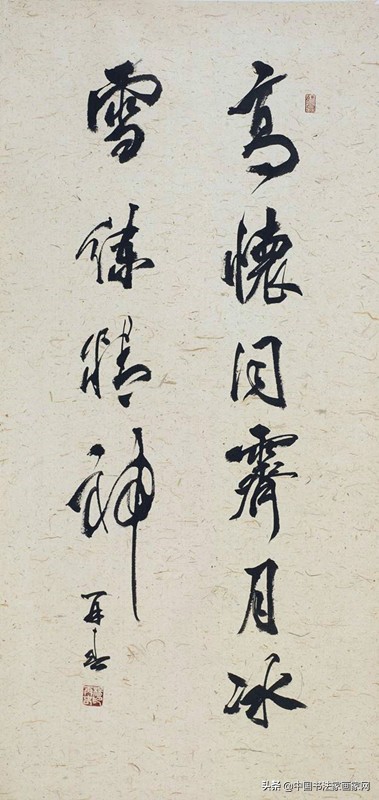 高懷同霽月冰
雪練精神
再春
头条 @中国书法家画家网